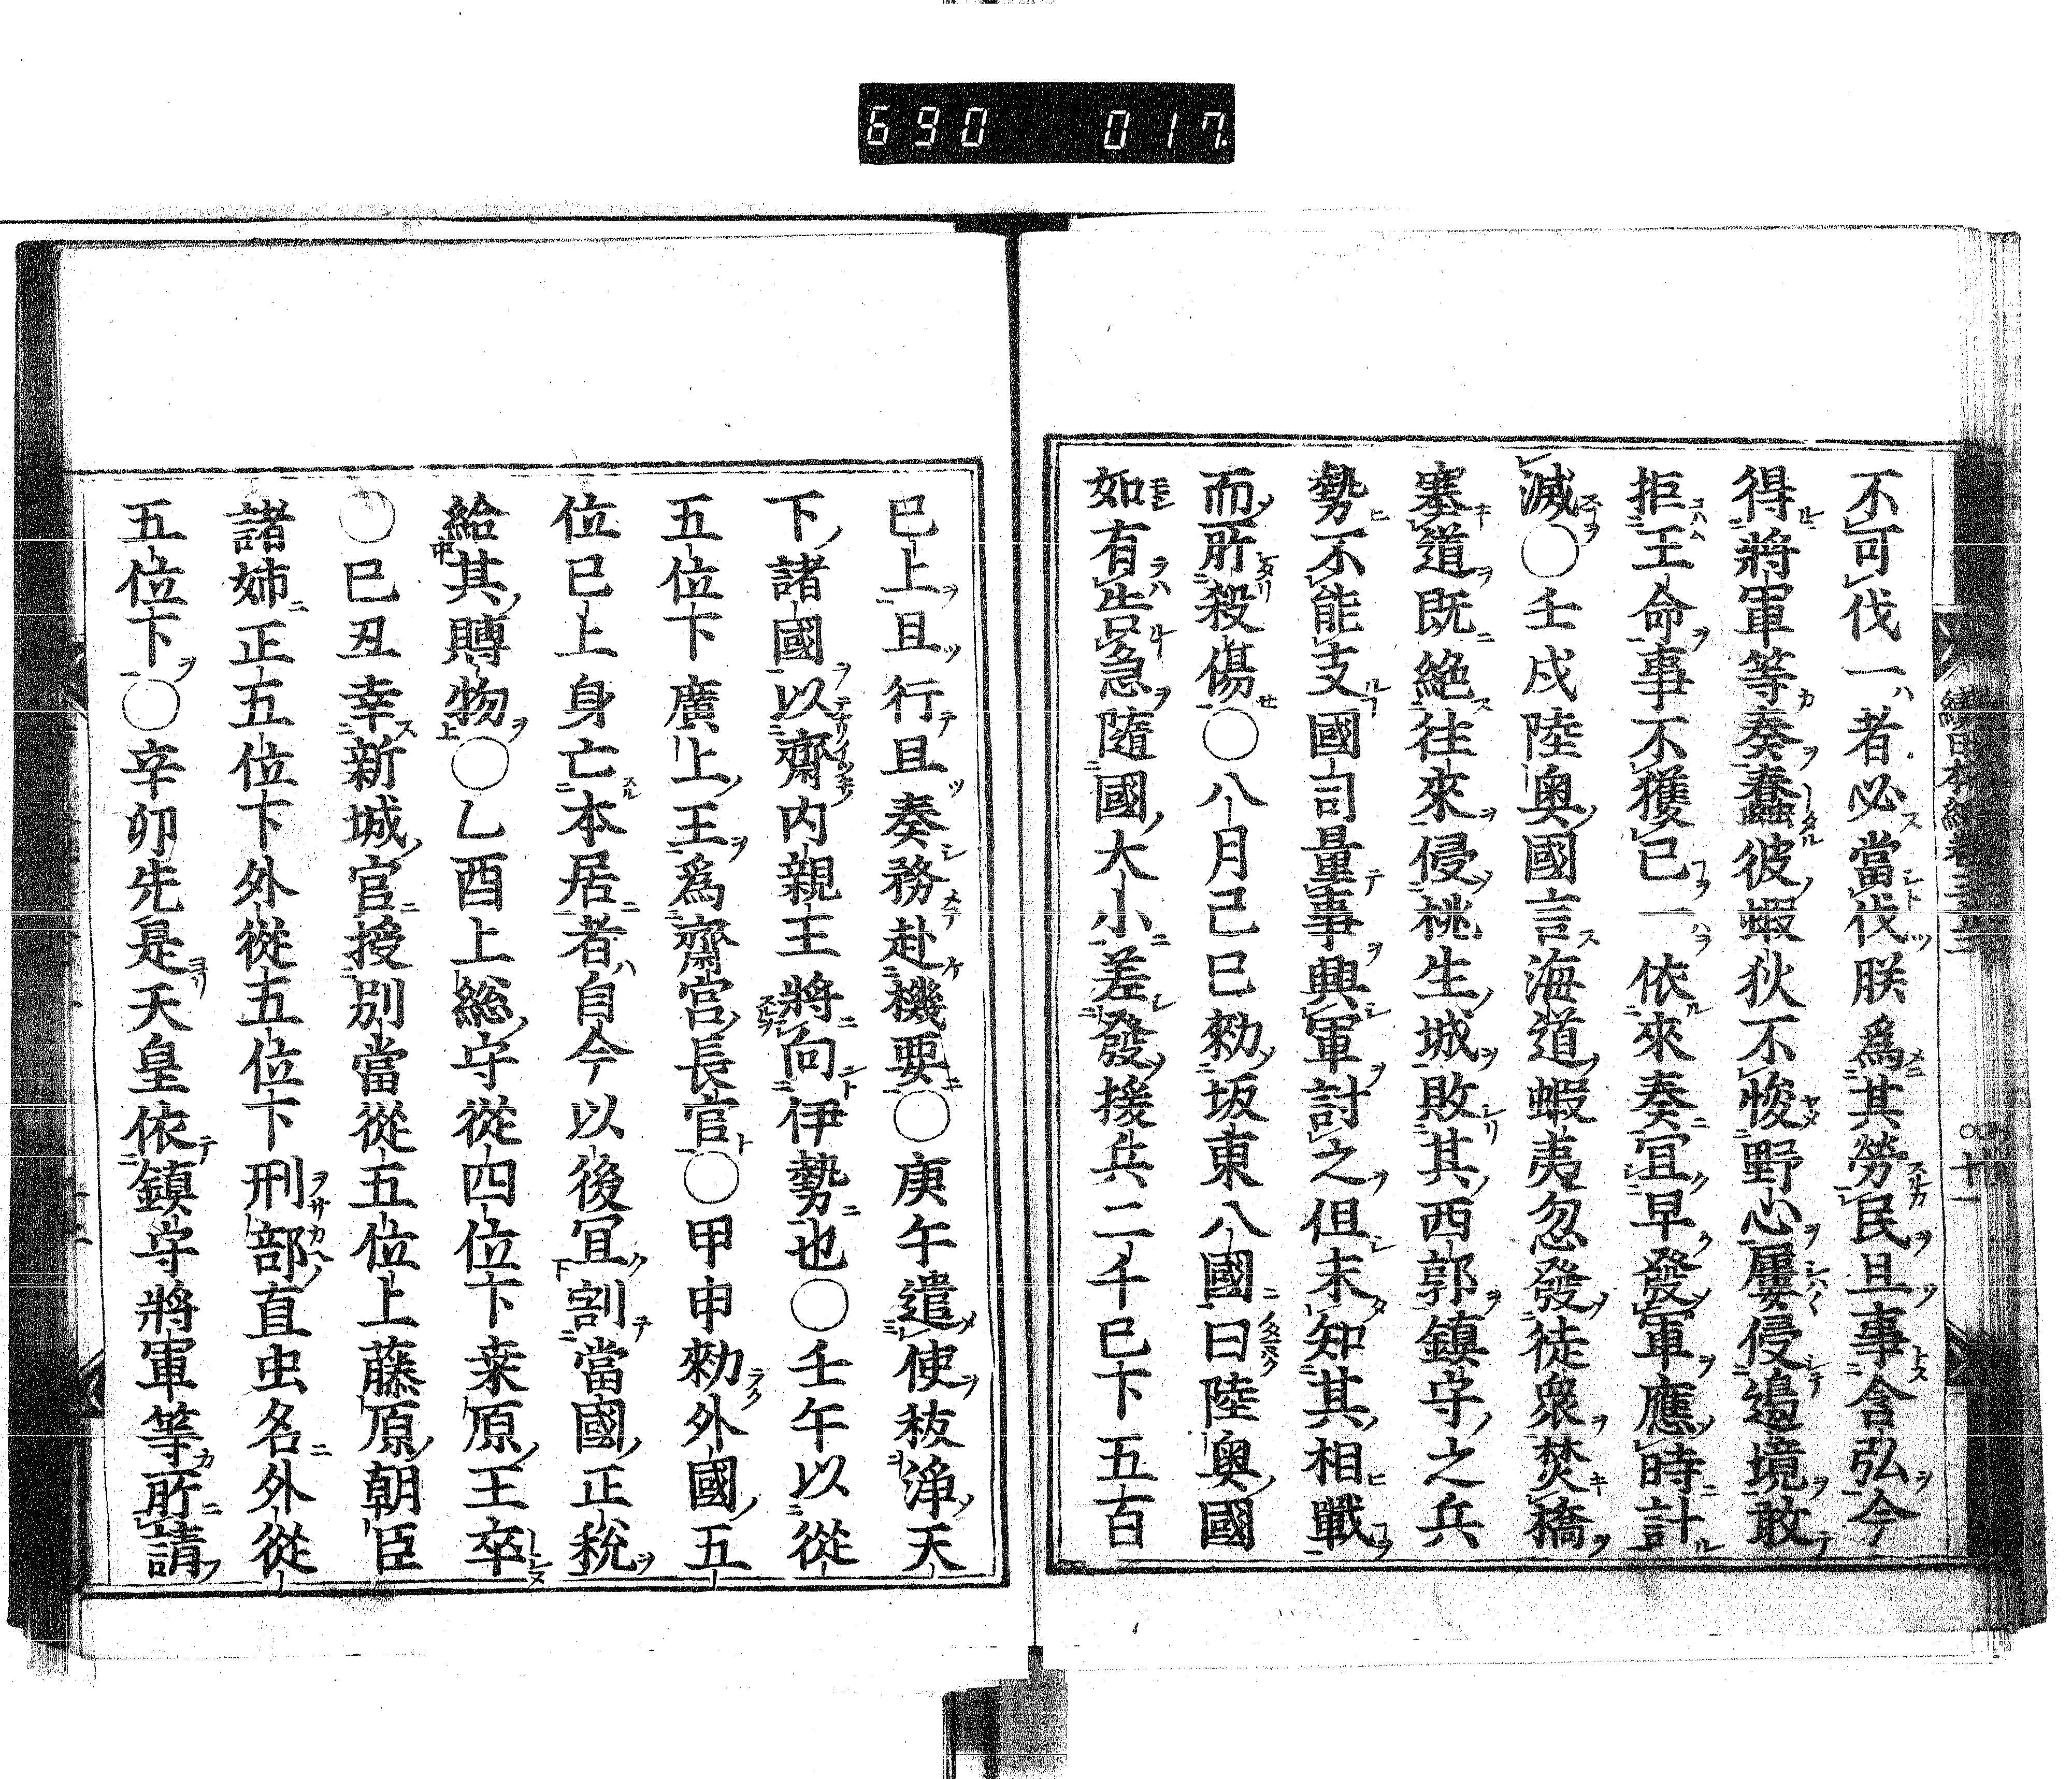 690 017
不可伐一者必當伐朕爲其勞民且事含弘今
得將軍等奏蠢彼蝦狄不悛野心屢侵邊境敢
拒王命事不獲已一依來奏冝早發軍應時計
滅〇壬戌陸奥國言海道蝦夷忽發徒衆焚橋
塞道既絶往來侵桃生城敗其西郭鎮守之兵
勢不能支國司量事興軍討之但未知其相戰
而所殺傷〇八月己巳勑坂東八國曰陸奥國
如有告急隨國大小差發援兵二千已下五百
已上且行且奏務赴機要〇庚午遣使秡淨天
下諸國以齋内親王將向伊勢也〇壬午以從
五位下廣上王爲齋宮長官〇甲申勑外國五
位已上身亡本居者自今以後冝割當國正税
給其賻物〇乙酉上総守從四位下桒原王卒
〇己丑幸新城官授別當從五位上藤原朝臣
諸姉正五位下外從五位下刑部直虫名外從
五位下〇辛卯先是天皇依鎮守將軍等所請